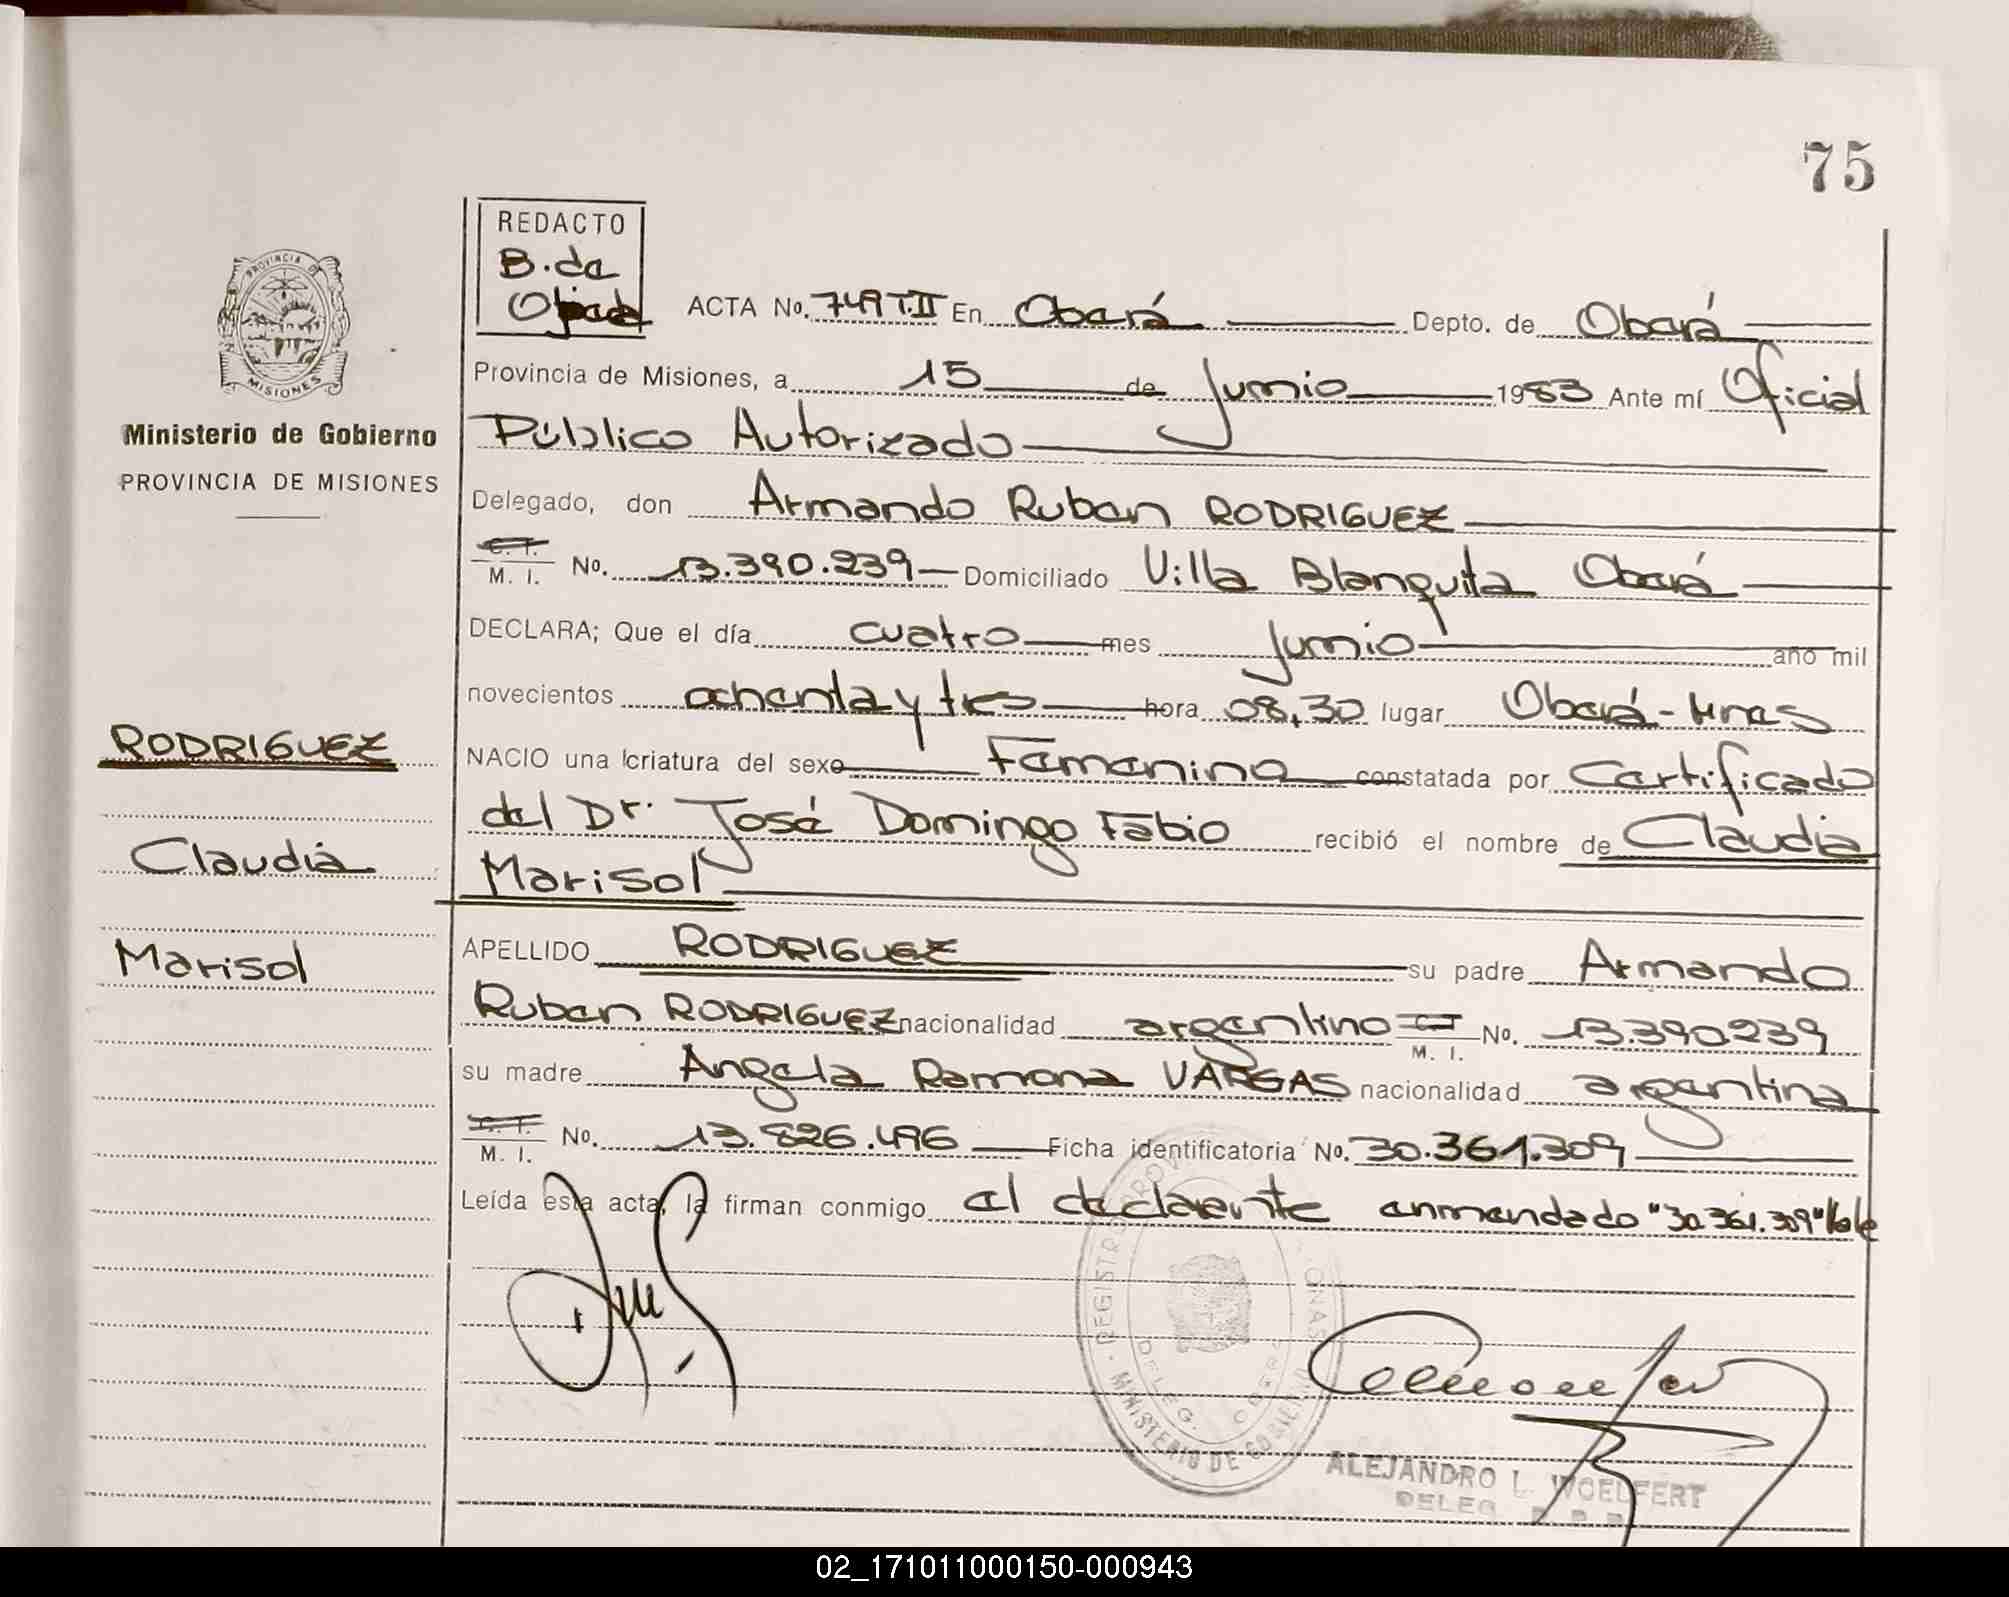 75
REDACTO
B. de
ACTA No. 749 T.II En Oberá Depto. de Oberá
Provincia de Misiones, a 15 de Junio 1983 Ante mí Oficial
Público Autorizado
Delegado, don Armando Ruben RODRIGUEZ
C. I.
M. I. No. 13.390.239 Domiciliado Villa Blanquita Oberá
DECLARA; Que el día cuatro mes Junio año mil
novecientos ochenta y tres hora 08,30 lugar Oberá - Mnes
NACIO una criatura del sexo Femenino constatada por Certificado
del Dr. José Domingo Fabio recibió el nombre de Claudia
Marisol
APELLIDO RODRIGUEZ su padre Armando
Ruben RODRIGUEZ nacionalidad argentino C I
M. I. No. 13.390239
su madre Angela Ramona VARGAS nacionalidad argentina
C. I.
M. I. No. 13.826.496 Ficha identificatoria No. 30.361.309
Leída esta acta, la firman conmigo el declarante enmendado "30.361.309" Vale
PROVINCIA DE
MISIONES
Ministerio de Gobierno
PROVINCIA DE MISIONES
RODRIGUEZ
Claudia
Marisol
REGISTRO PROV ONAS
MINISTERIO DE GOBIERNO
DELEG. OBERA
ALEJANDRO L. WOELFERT
DELEG.
02_171011000150-000943